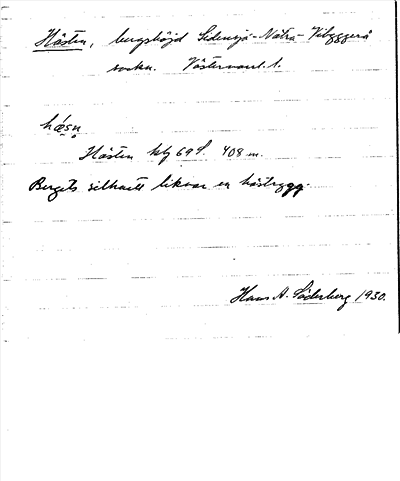 Hästen, bergshöjd Sidensjö - Nätra - Vibyggerå
sockn. Västernorrl. l.
hä́sn̥
Hästen kbl 69 S. 408 m.
Bergets silhuett liknar en hästrygg.
Hans A. Söderberg 1930.